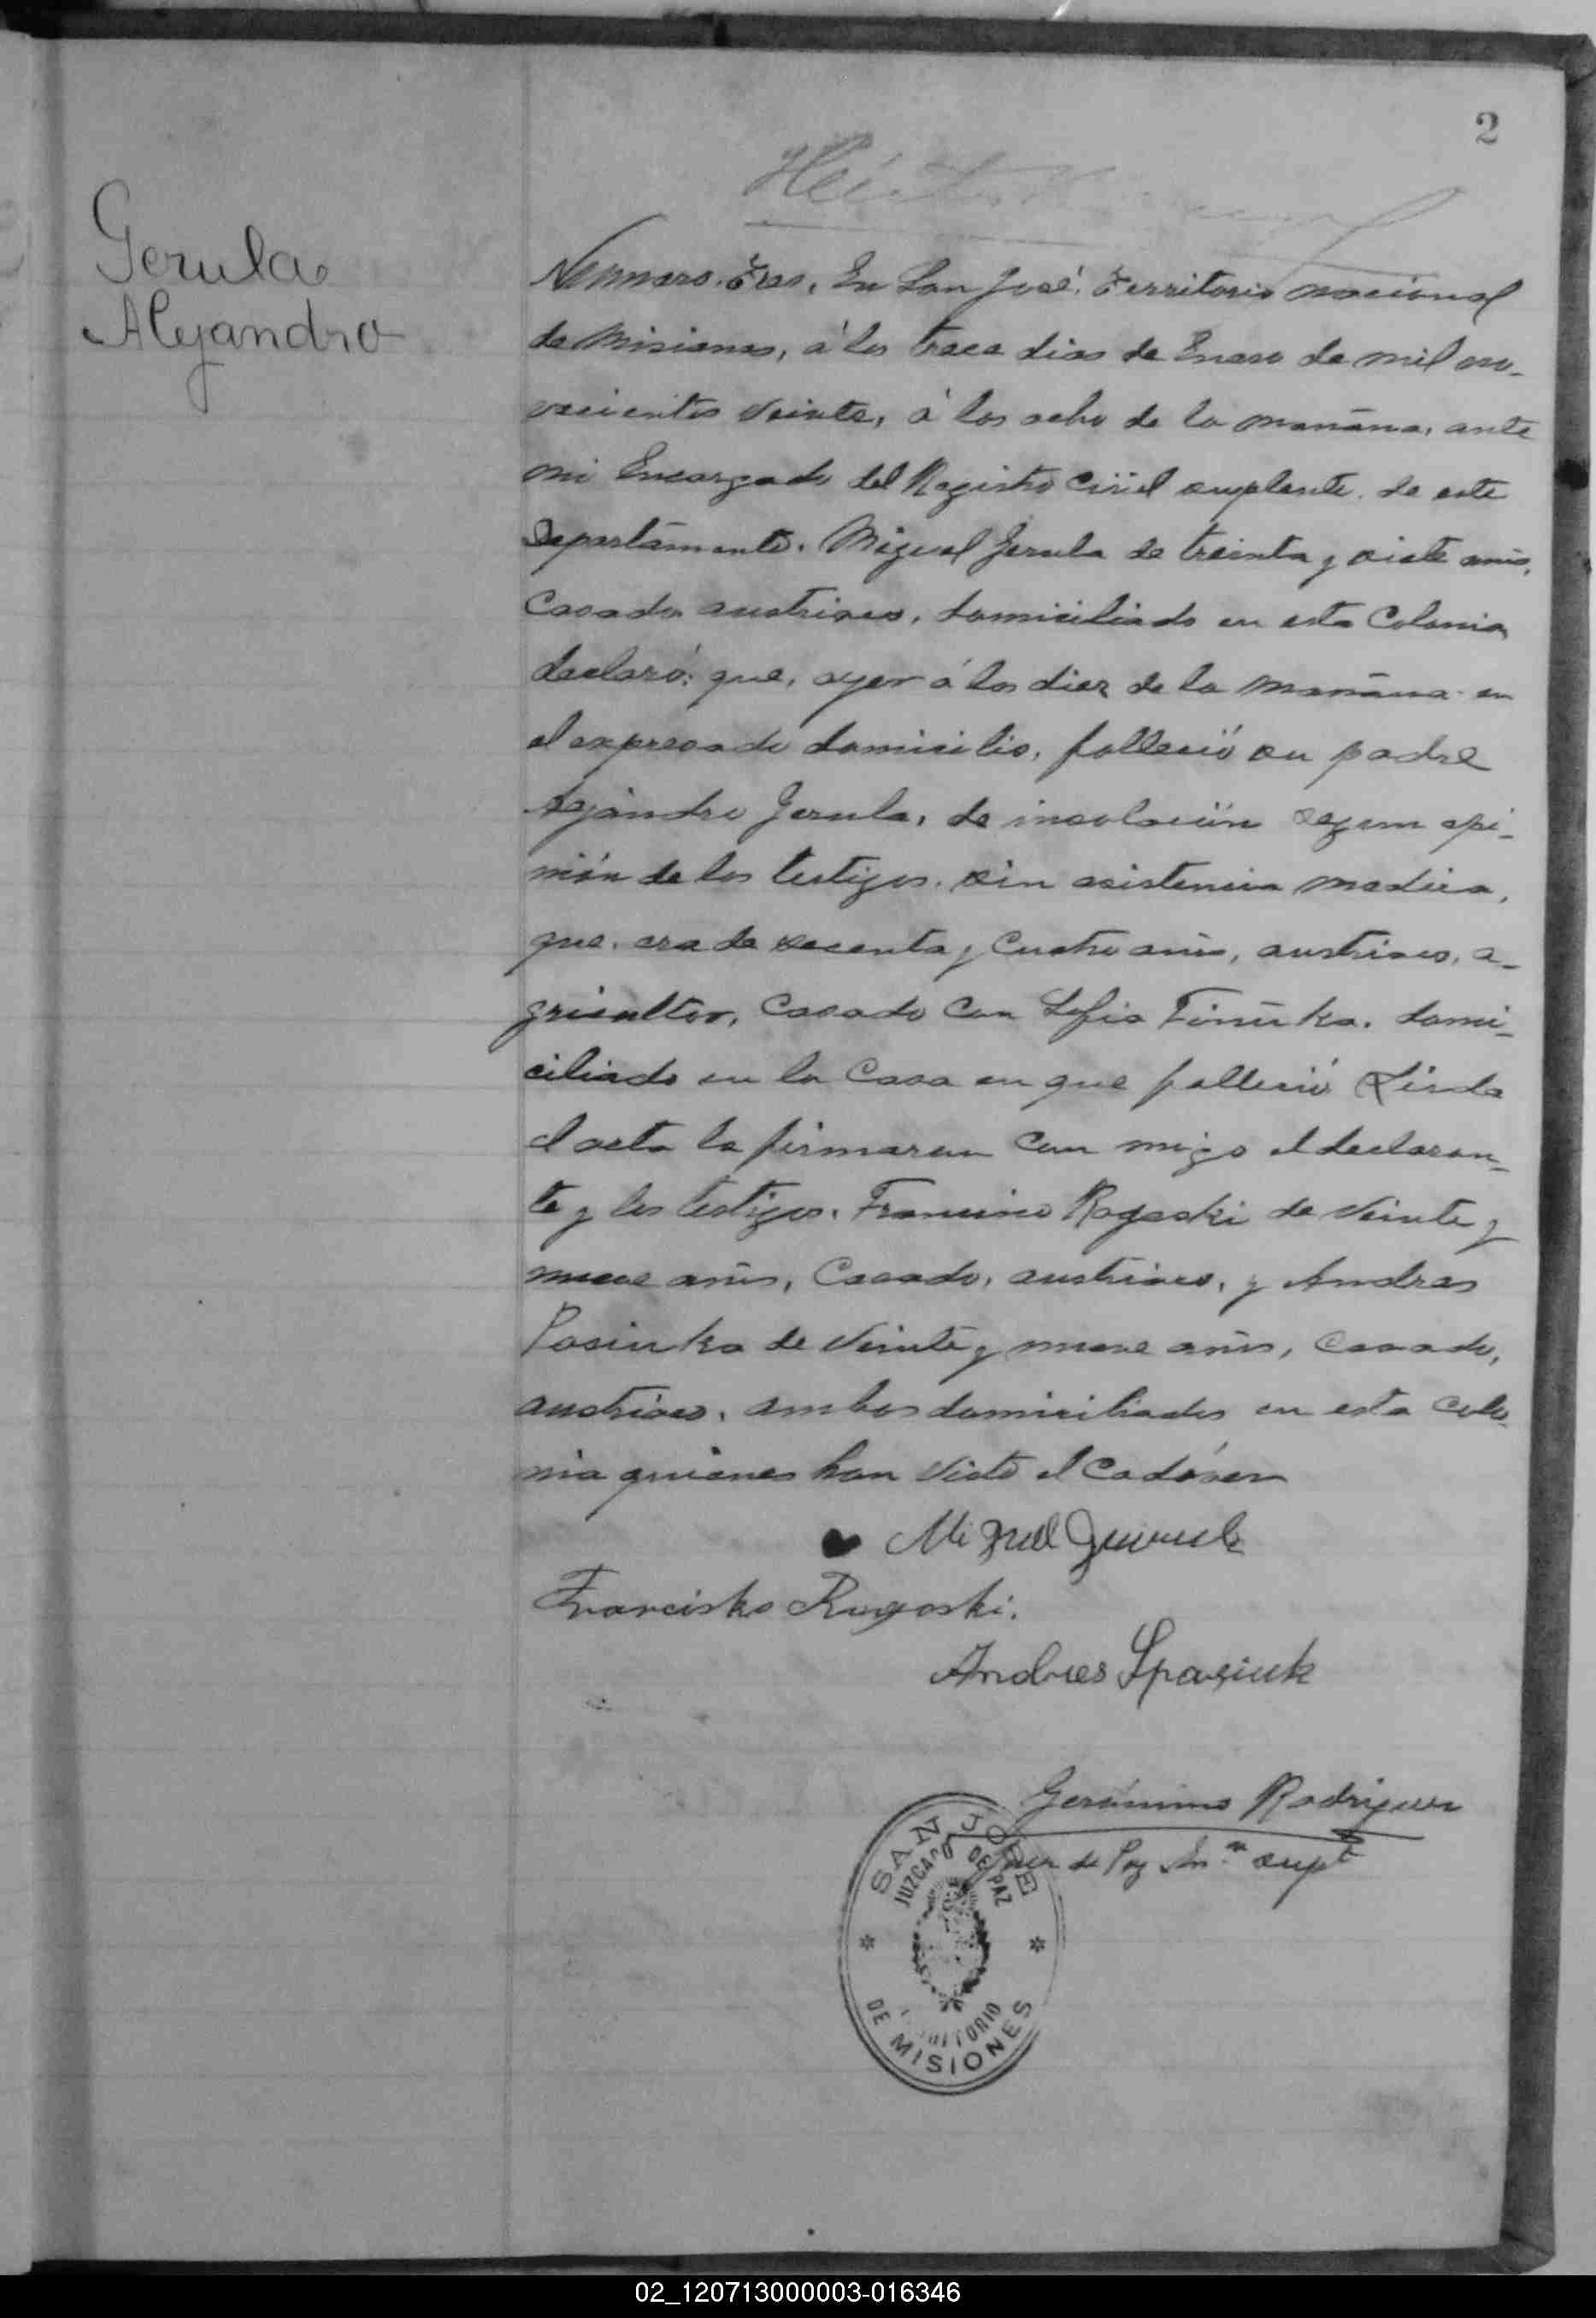 2
Gerula
Alejandro
Numero. Tres, En San José, Territorio nacional
de Misiones, á los trece dias de Enero de mil no-
vecientos veinte, á las ocho de la mañana, ante
mi Encargado del Registro Civil suplente. de este
Departamento. Miguel Gerula de treinta y siete años,
Casado austriaco, domiciliado en esta Colonia
declaró: que, ayer á las diez de la mañana en
el expresado domicilio, falleció su padre
Alejandro Gerula, de insolación segun opi-
nión de los testigos. sin asistencia medica,
que. era de secenta y Cuatro años, austriaco, a-
gricultor, Casado Con Sofia domi-
ciliado en la Casa en que falleció Leida
el acta la firmaron Con migo el declaran-
te y los testigos. Francisco Rogoski de veinte y
nueve años, Casado, austriaco, y Andres
Posiuka de veinte y nueve años, Casado,
austriaco, ambos domiciliados en esta Colo-
nia quienes han visto el Cadáver
Miguel Gerula
Francisko Rugoski.
Andres Spasiuk
Gerónimo Rodriguez
Juez de Paz supte
SAN JOSE
JUZGADO DE PAZ
TERRITORIO
DE MISIONES
02_120713000003-016346